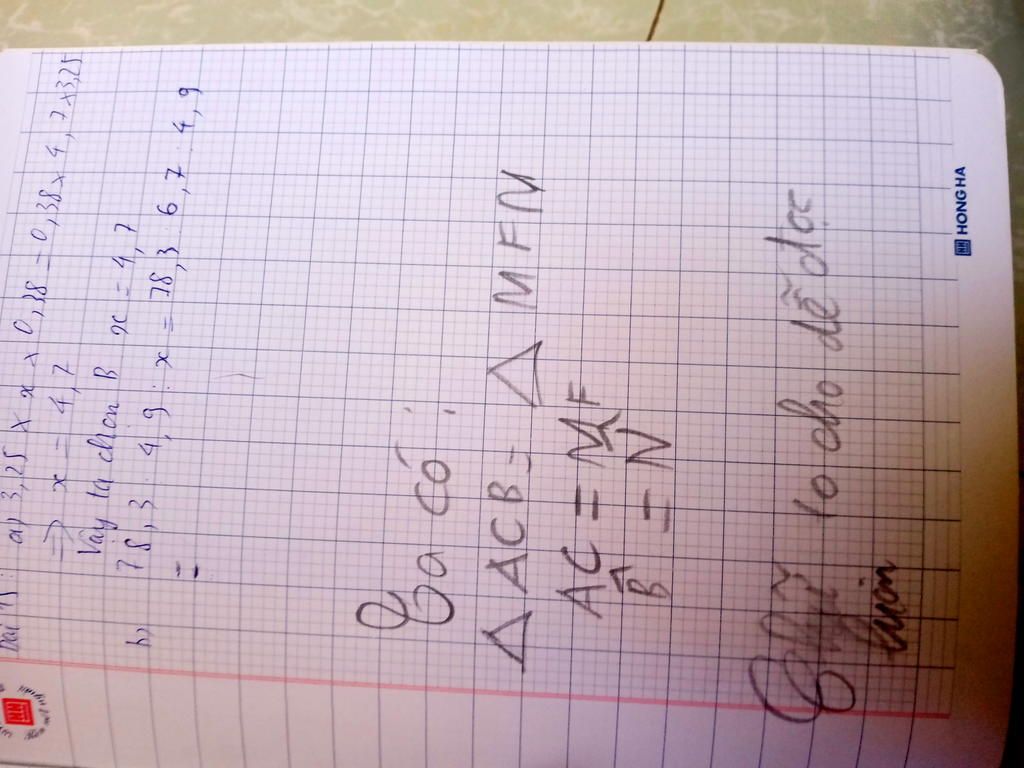 Bài 15: a) 3,25 x x x 0,38 = 0,38 x 4,7 x 3,25
=> x = 4,7
Vậy ta chọn B x = 4,7
b, 78,3 : 4,9 : x = 78,3 : 6,7 : 4,9
=
Ta có :
△ ACB = △ MFN
AC = MF
B̂ = N̂
Chữ to cho dễ đọc
luôn
HONG HA